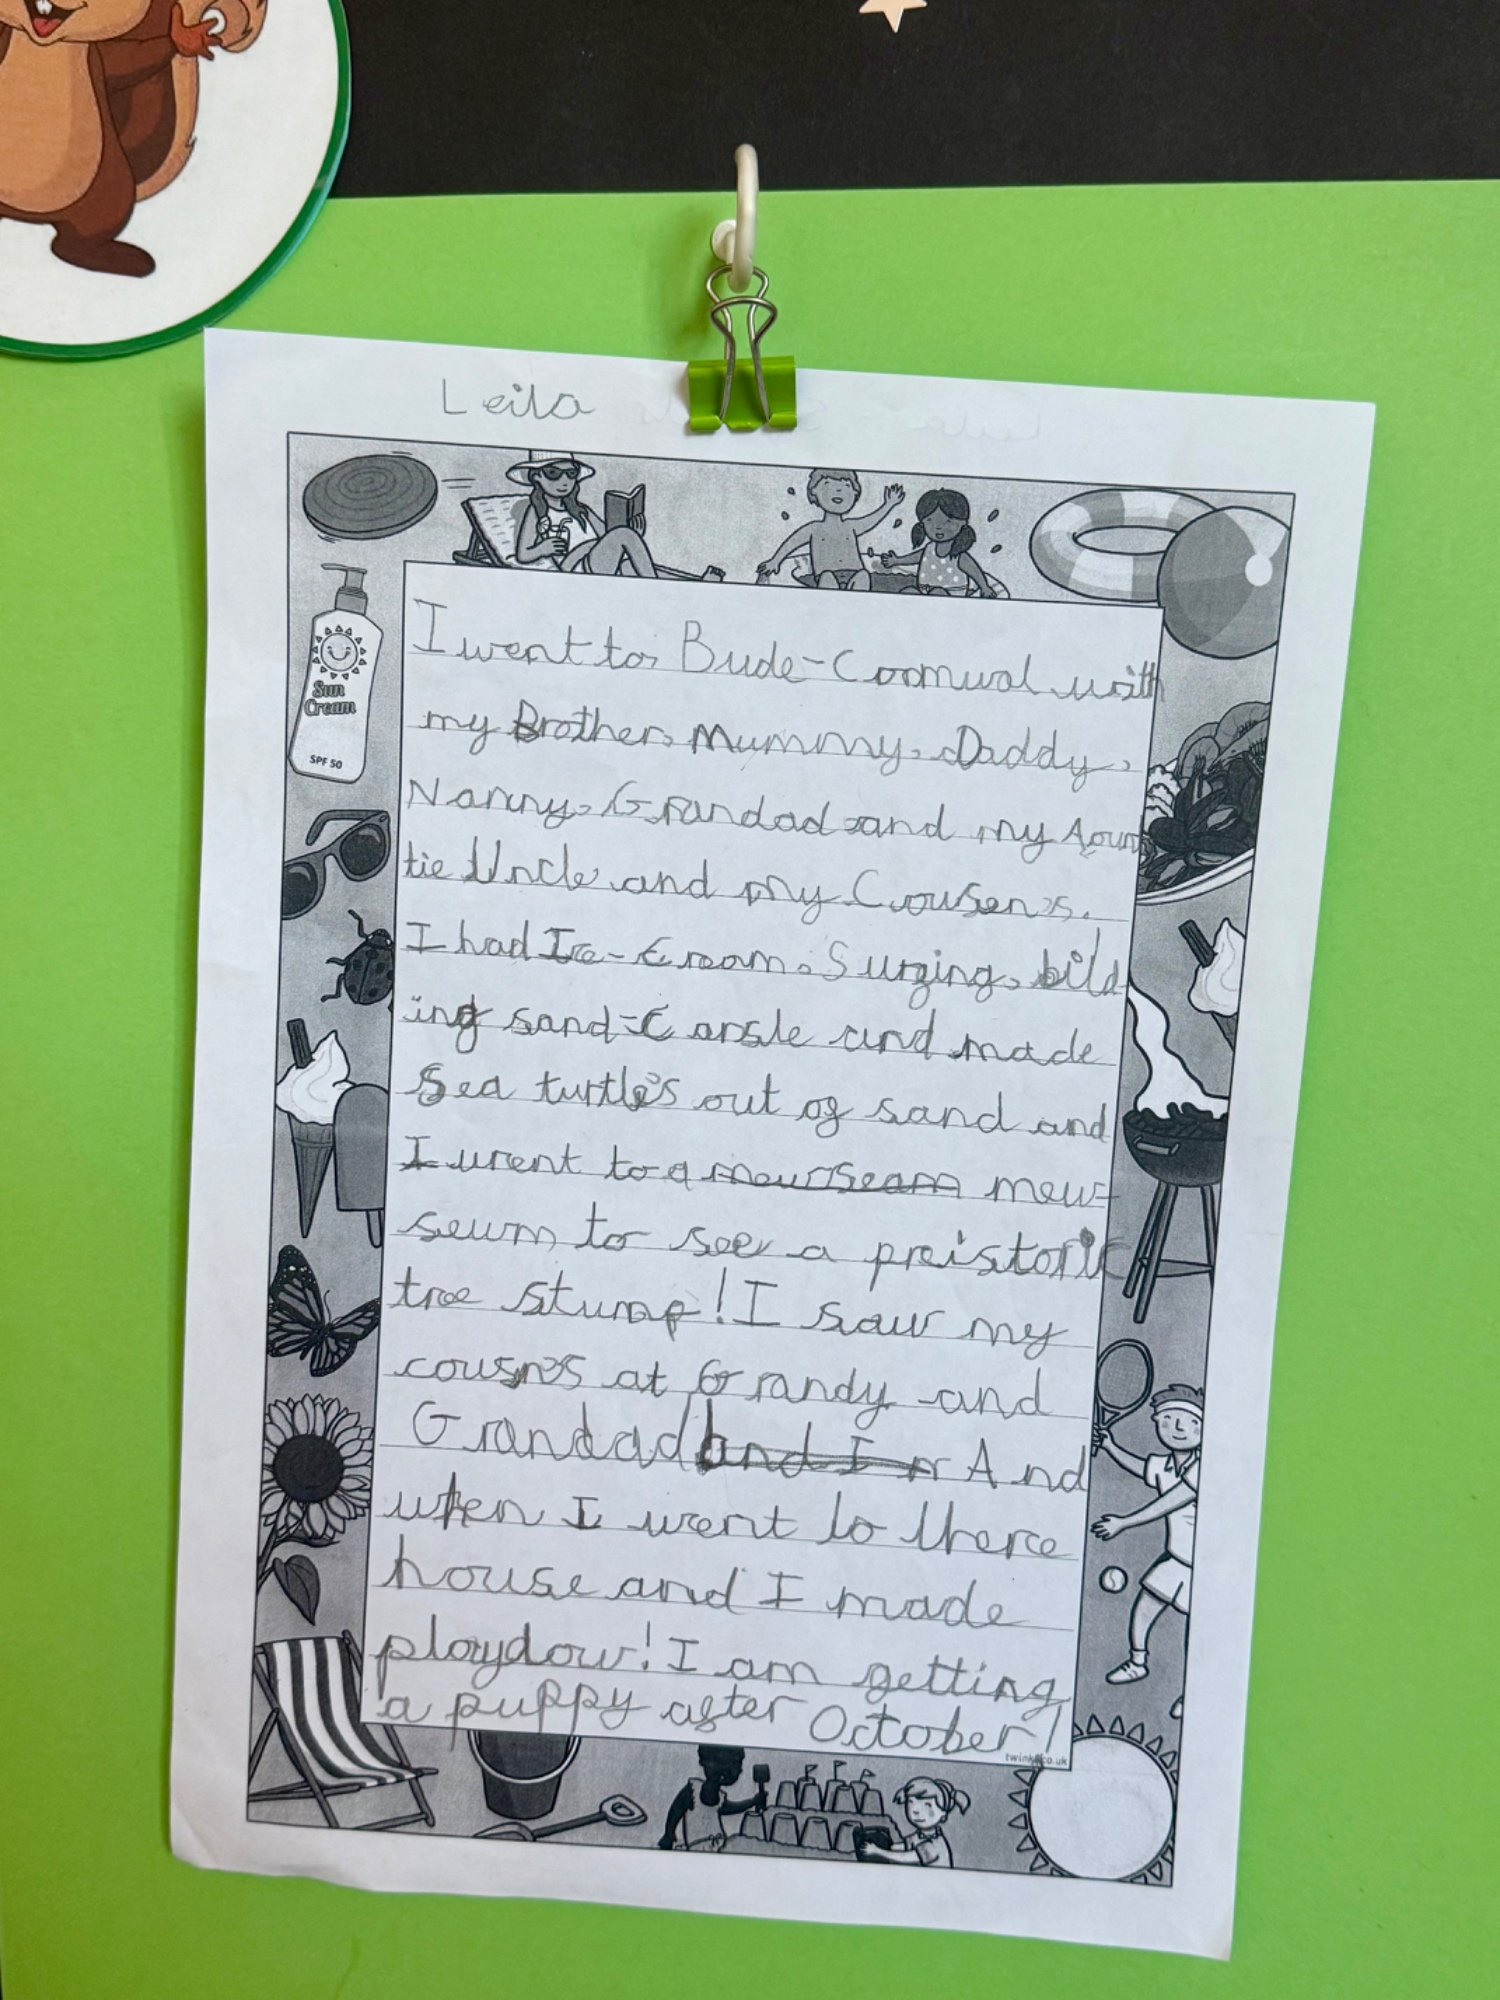 Leila
Sun
Cream
SPF 50
I went to Bude-Coornwal with
my Brother, Mummy, Daddy,
Nanny, Grandad and my Aoun
tie Uncle and my Cousen's.
I had Ice-Cream, Surfing, bild
ing sand-Carsle and made
Sea turtle's out of sand and
I went to a mewseam mew-
sewm to see a preistoric
tree stump! I saw my
cousn's at Grandy and
Grandad and I And
when I went to there
house and I made
playdow! I am getting
a puppy after October!
twinkl.co.uk